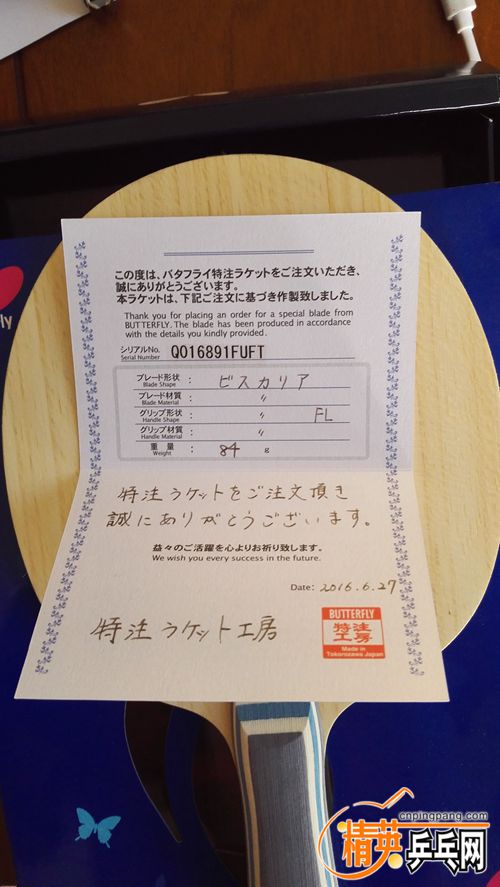 lly
この度は、バタフライ特注ラケットをご注文いただき、
誠にありがとうございます。
本ラケットは、下記ご注文に基づき作製致しました。
Thank you for placing an order for a special blade from
BUTTERFLY. The blade has been produced in accordance
with the details you kindly provided.
シリアルNo. Serial Number Q016891FUFT
ブレード形状 Blade Shape : ビスカリア
ブレード材質 Blade Material : 〃
グリップ形状 Handle Shape : 〃 FL
グリップ材質 Handle Material : 〃
重量 Weight : 84 g
特注ラケットをご注文頂き
誠にありがとうございます。
益々のご活躍を心よりお祈り致します。
We wish you every success in the future.
Date: 2016.6.27
特注ラケット工房
BUTTERFLY
特注
工房
Made in
Tokorozawa Japan
cnpingpang.com
精英乒乓网